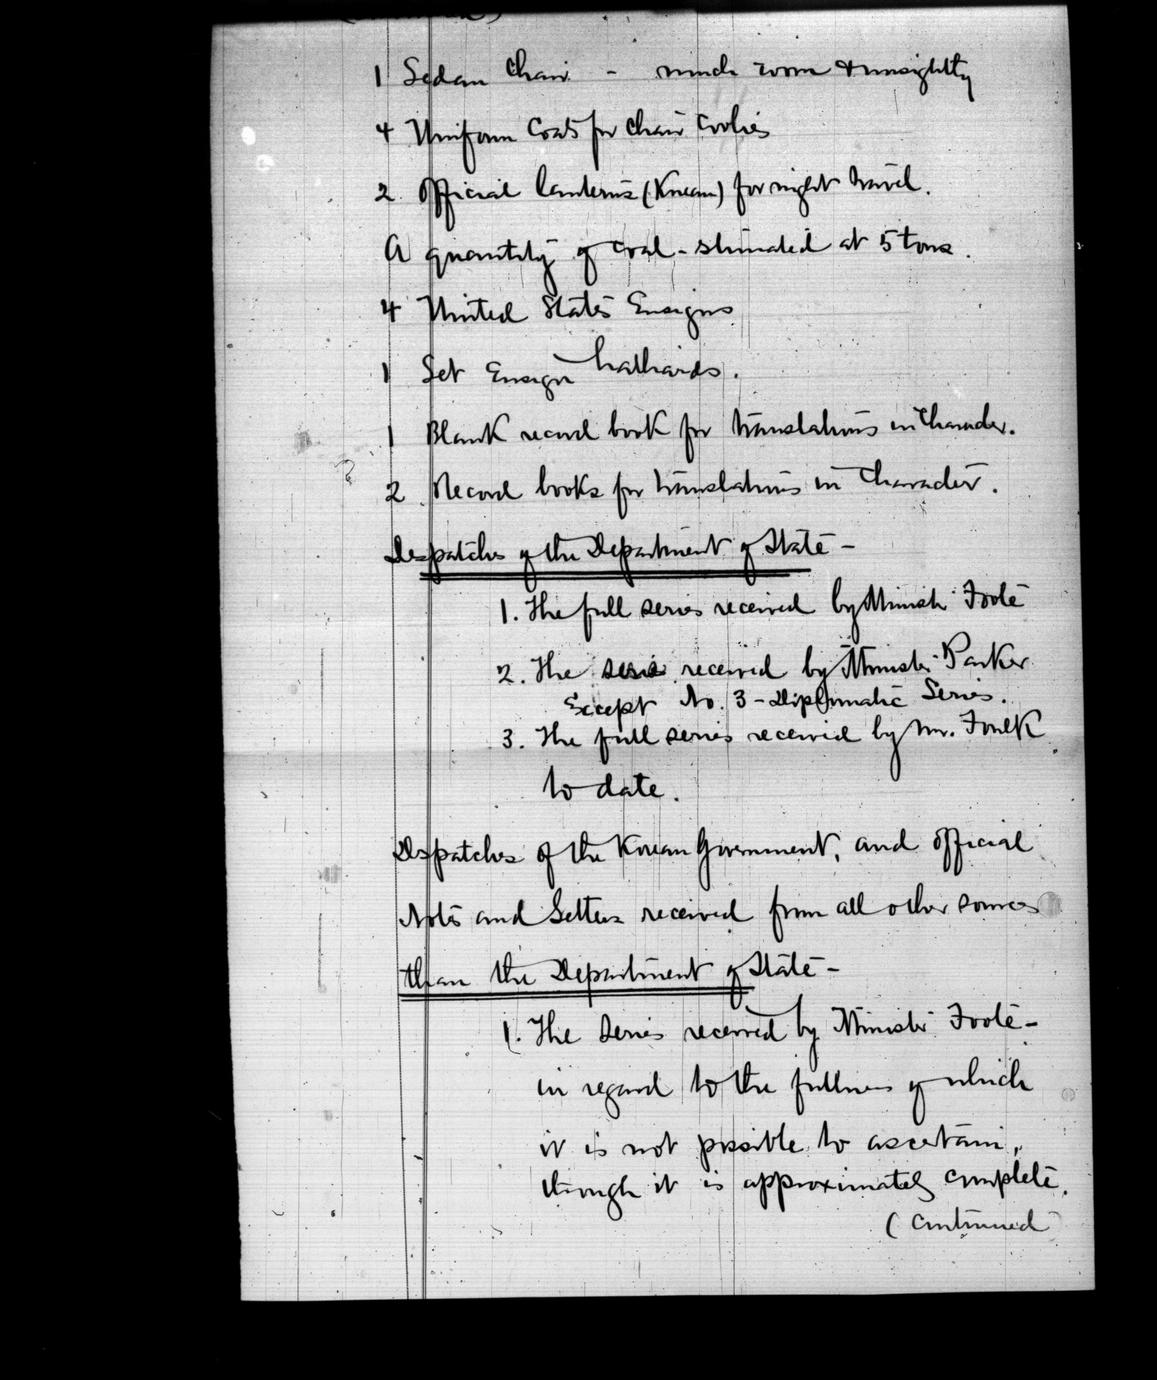 1 Sedan Chair - much worn & unsightly
4 Uniform Coats for chair coolies
2 Official lanterns (Korean) for night travel.
A quantity of coal - stimated at 5 tons.
4 United States Ensigns
1 Set Ensign halliards.
1 Blank record book for translations in Character.
2 Record books for translations in Character.
Despatches of the Department of State -
1. The full series received by Minister Foote
2. The series received by Minister Parker
Except No. 3 - Diplomatic Series.
3. The full series received by Mr. Foulk
to date.
Despatches of the Korean Government, and official
Notes and Letters received from all other sources
than the Department of State -
1. The series received by Minister Foote -
in regard to the fullness of which
it is not possible to ascertain,
though it is approximately complete.
(continued)